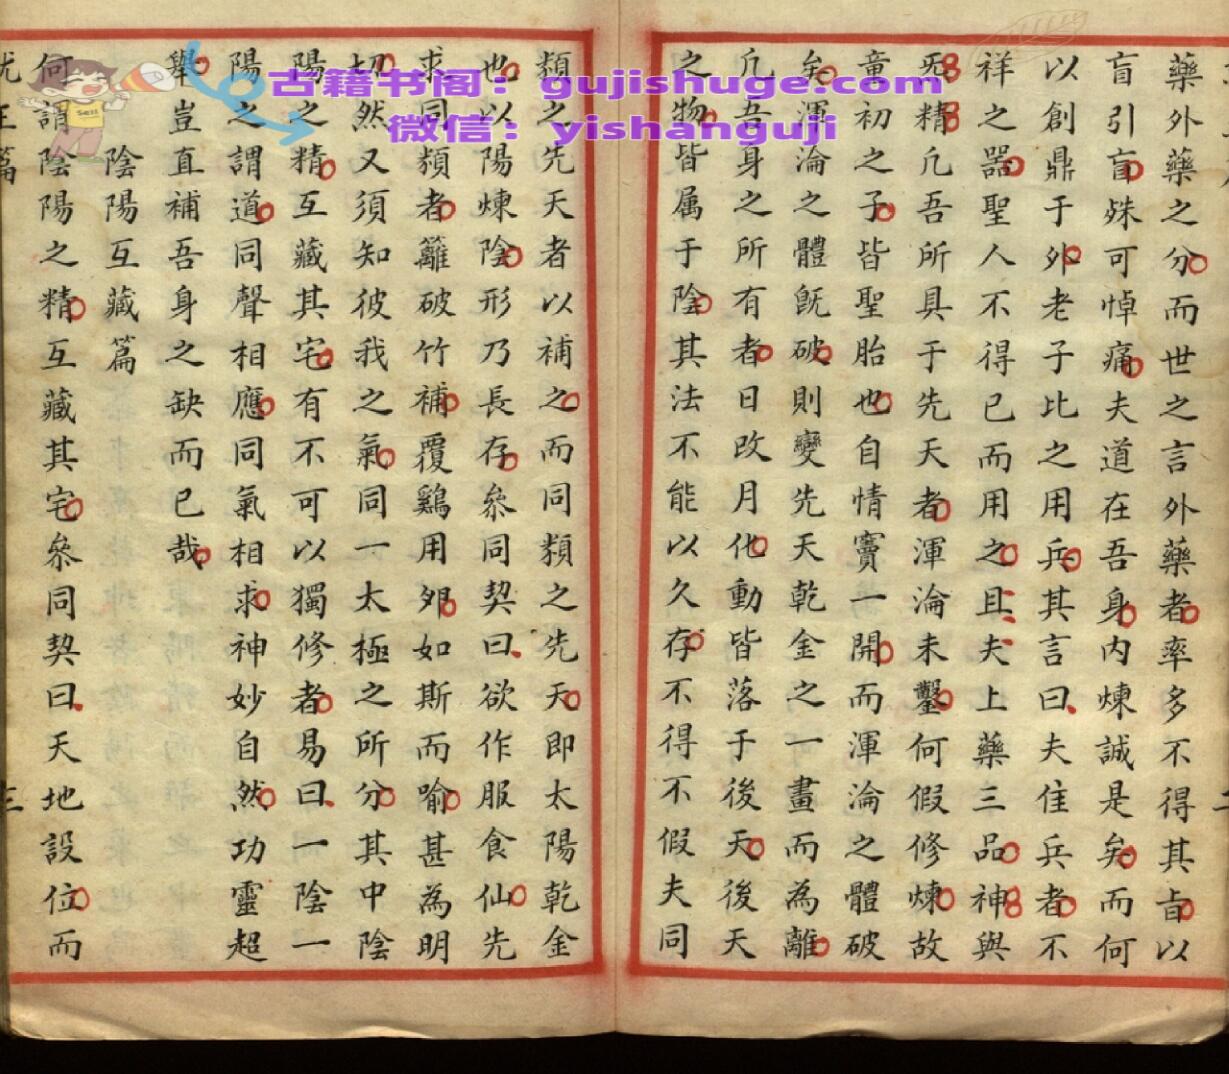 藥外藥之分而世之言外藥者率多不得其旨以
盲引盲殊可悼痛夫道在吾身内煉誠是矣而何
以創鼎于外老子比之用兵其言曰夫佳兵者不
祥之噐聖人不得已而用之且夫上藥三品神與
炁精凢吾所具于先天者渾淪未鑿何假修煉故
童初之子皆聖胎也自情竇一開而渾淪之體破
矣渾淪之體既破則變先天乾金之一畫而為離
凢吾身之所有者日改月化動皆落于後天後天
之物皆属于陰其法不能以久存不得不假夫同
類之先天者以補之而同類之先天即太陽乾金
也以陽煉陰形乃長存叅同契曰欲作服食仙先
求同類者籬破竹補覆鷄用夘如斯而喻甚為明
切然又須知彼我之氣同一太極之所分其中陰
陽之精互藏其宅有不可以獨修者易曰一陰一
陽之謂道同聲相應同氣相求神妙自然功靈超
舉豈直補吾身之缺而已哉
陰陽互藏篇
何謂陰陽之精互藏其宅叅同契曰天地設位而
三
古籍书阁：gujishuge.com
微信：yishanguji